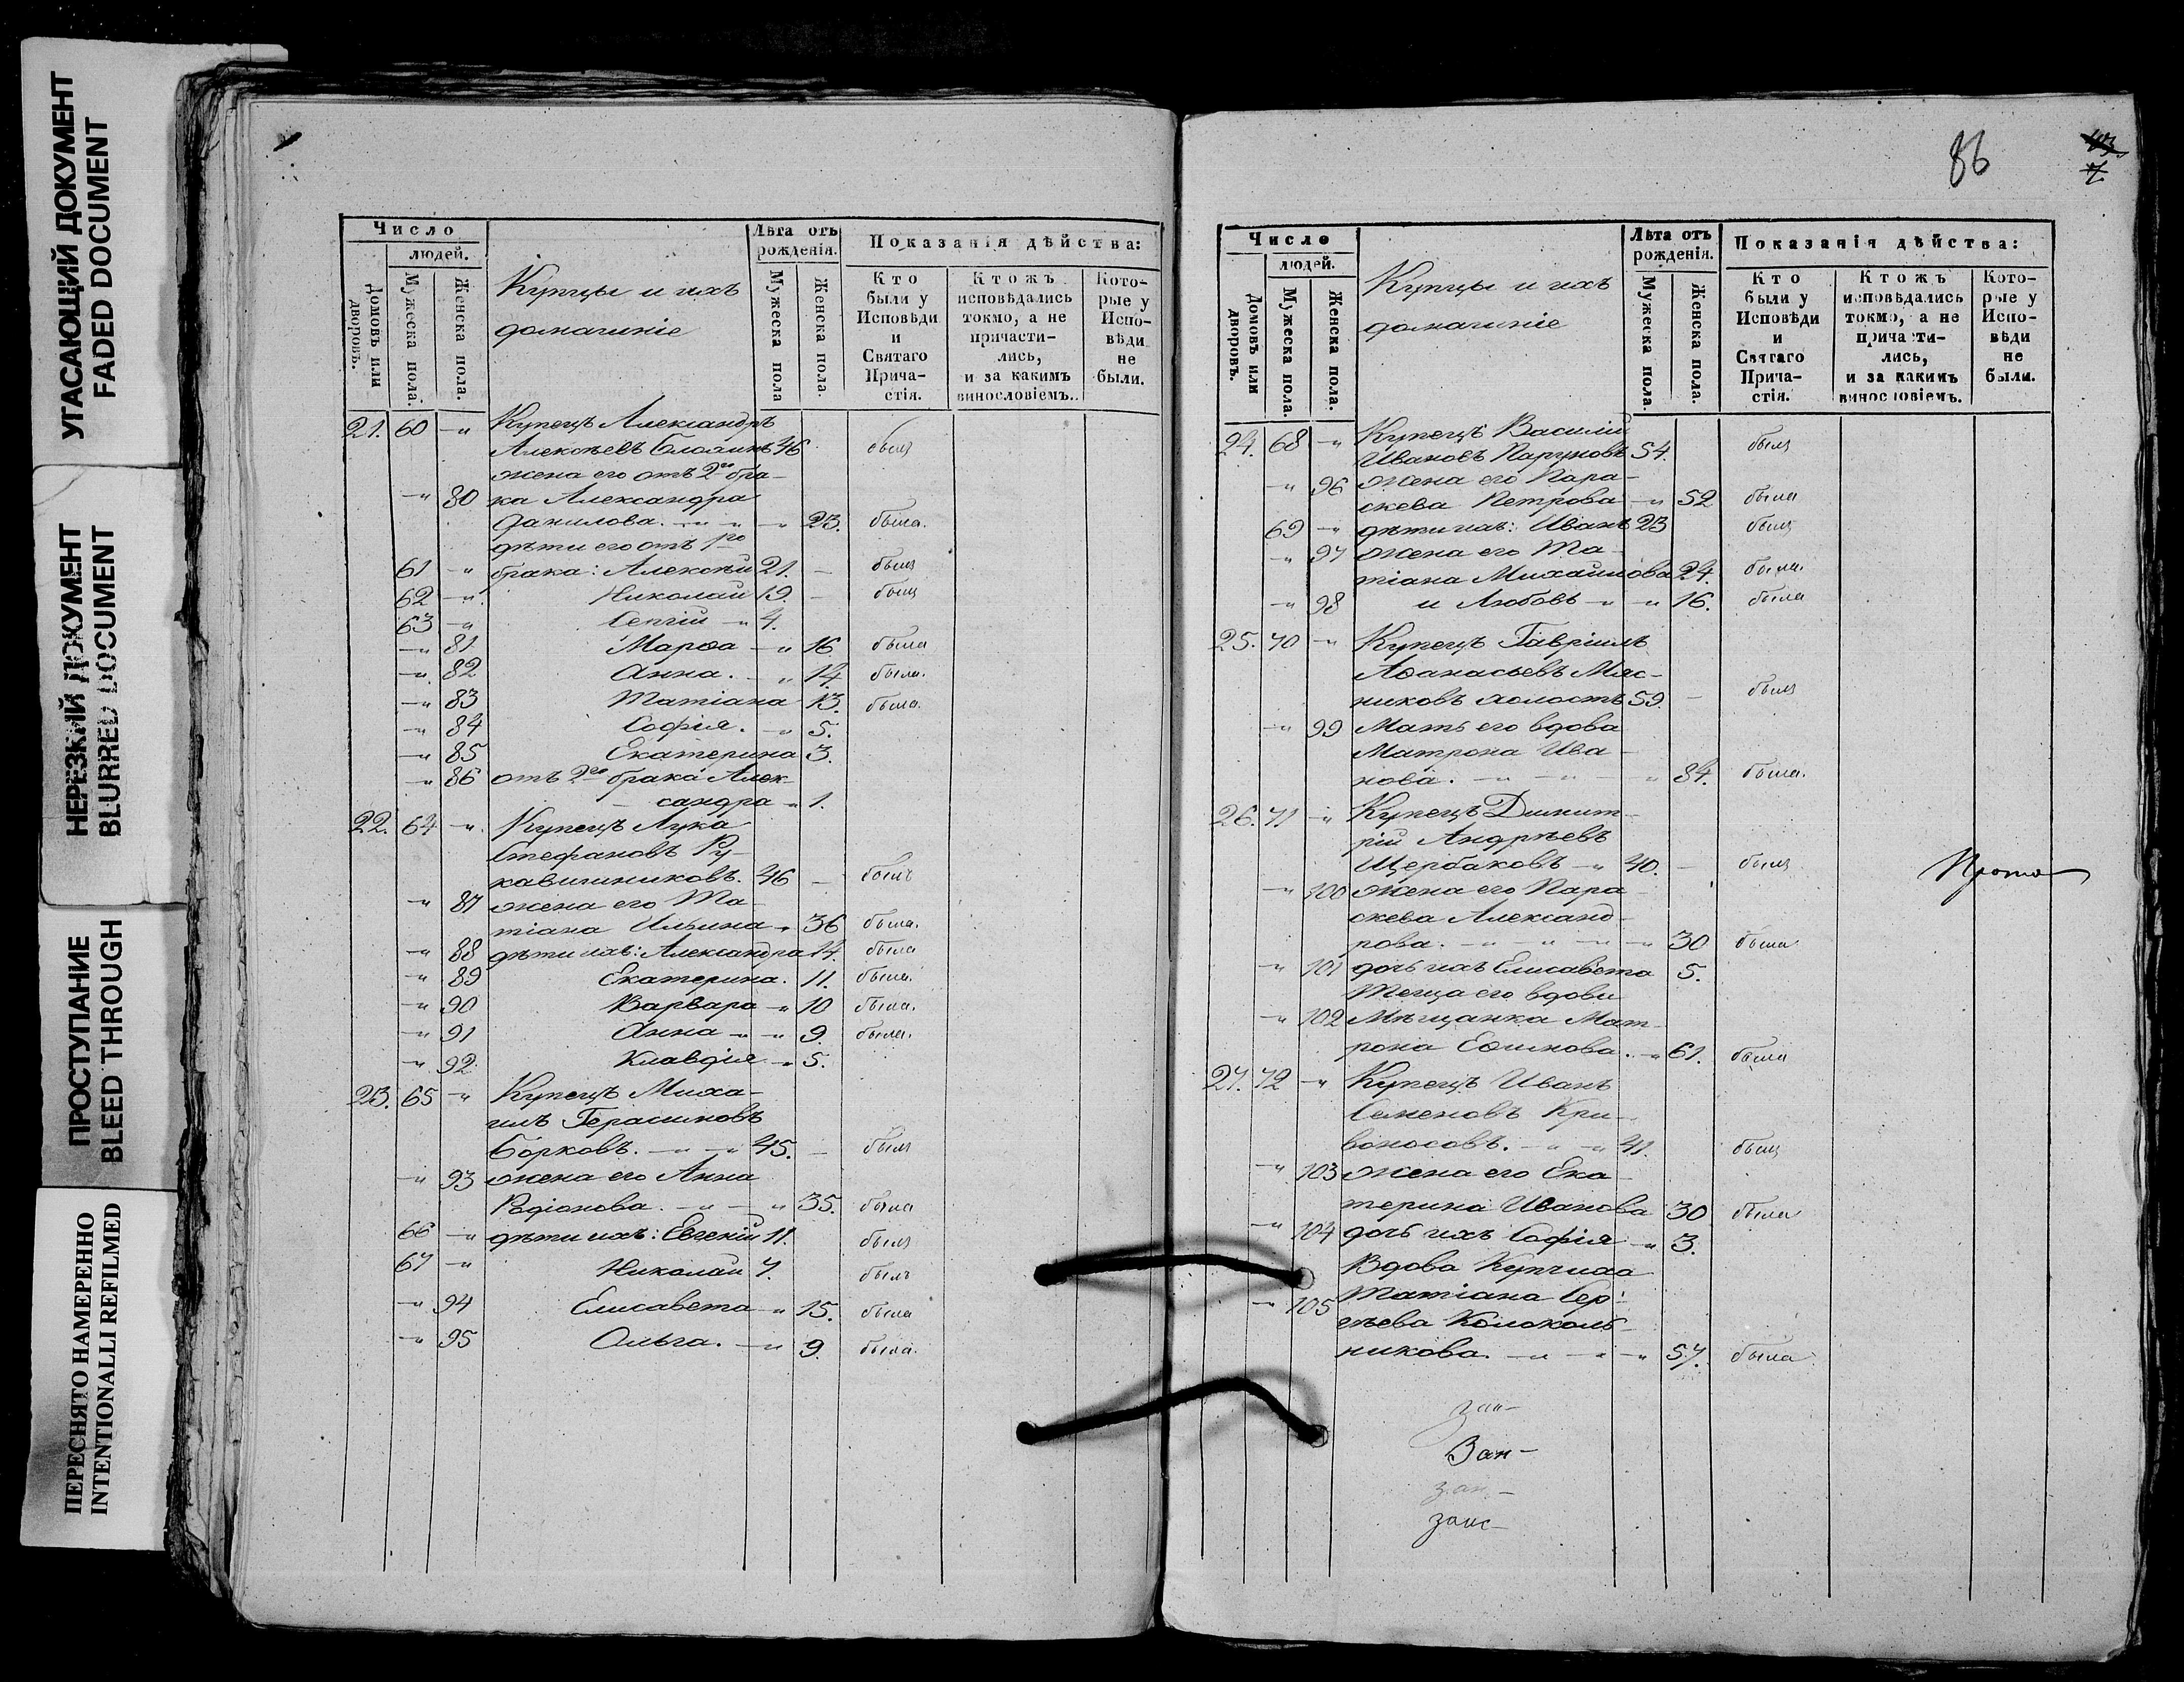 УГАСАЮЩИЙ ДОКУМЕНТ
FADED DOCUMENT
НЕРЕЗКИЙ ДОКУМЕНТ
BLURRED DOCUMENT
ПРОСТУПАНИЕ
BLEED THROUGH
ПЕРЕСНЯТО НАМЕРЕННО
INTENTIONALLI REFILMED
Число
людей.
Домовъ или дворовъ.
Мужеска пола.
Женска пола.
Купцы и ихъ
домашніе
Лѣта отъ
рожденія.
Мужеска пола
Женска пола.
Показанія дѣйства:
Кто были у Исповѣди и Святаго Причастія.
Ктожъ исповѣдались токмо, а не причастились, и за какимъ винословіемъ.
Которые у Исповѣди не были.
21. 60 -"- Купецъ Александръ
Алексѣевъ 46 былъ
жена его отъ 2го бра-
-"- 80 ка Александра
Данилова. -"- 23. была.
дѣти его отъ 1го
61 -"- брака: Алексѣй 21. - былъ
62 -"- Николай 19. - былъ
63 -"- Сергій -"- 4.
-"- 81 Марѳа -"- 16 была
-"- 82 Анна. -"- 14. была.
-"- 83 Татіана 13. была.
-"- 84 Софія. -"- 5.
-"- 85 Екатерина 3.
-"- 86 отъ 2го брака Алек-
сандра -"- 1.
22. 64 -"- Купецъ Лука
Стефановъ Ру-
кавишниковъ. 46 - былъ
-"- 87 жена его Та-
тіана Ильина -"- 36 была.
-"- 88 дѣти ихъ: Александра 14. была
-"- 89 Екатерина. 11. была.
-"- 90 Варвара -"- 10 была.
-"- 91 Анна -"- 9. была.
-"- 92. Клавдія -"- 5.
23. 65 -"- Купецъ Миха-
илъ Герасимовъ
Борковъ. -"- 45. - былъ
-"- 93 жена его Анна
Родіонова. -"- 35. была
66 -"- дѣти ихъ: Евгеній 11. былъ
67 -"- Николай 7. былъ
-"- 94 Елисавета -"- 15. была
-"- 95 Ольга. -"- 9. была.
86
Число
людей.
Домовъ или дворовъ.
Мужеска пола.
Женска пола.
Купцы и ихъ
домашніе
Лѣта отъ
рожденія.
Мужеска пола.
Женска пола.
Показанія дѣйства:
Кто были у Исповѣди и Святаго Причастія.
Ктожъ исповѣдались токмо, а не причастились, и за какимъ винословіемъ.
Которые у Исповѣди не были.
24. 68 -"- Купецъ Василій
Ивановъ Паруновъ 54. былъ
-"- 96 жена его Пара-
скева Петрова -"- 52 была
69 -"- дѣти ихъ: Иванъ 23 былъ
-"- 97 жена его Та-
тіана Михайлова 24. была.
-"- 98 и Любовь -"- 16. была
25. 70 -"- Купецъ Гавріилъ
Аѳанасьевъ Мяс-
никовъ холостъ 59. - былъ
-"- 99 Мать его вдова
Матрона Ива-
нова. -"- 84. была.
26. 71 -"- Купецъ Димит-
рій Андрѣевъ
Щербаковъ -"- 40. - былъ
-"- 100 жена его Пара-
скева Александ-
рова. -"- 30 была.
-"- 101 дочь ихъ Елисавета 5.
Теща его вдова
-"- 102 Мѣщанка Мат-
рона Еѳимова. -"- 61. была
27. 72 -"- Купецъ Иванъ
Семеновъ Кри-
воносовъ. -"- 41. былъ
-"- 103 жена его Ека-
терина Иванова 30 была
-"- 104 дочь ихъ Софія -"- 3.
Вдова Купчиха
-"- 105 Татіана Сер-
гѣева Колоколь-
никова. -"- 57. была.